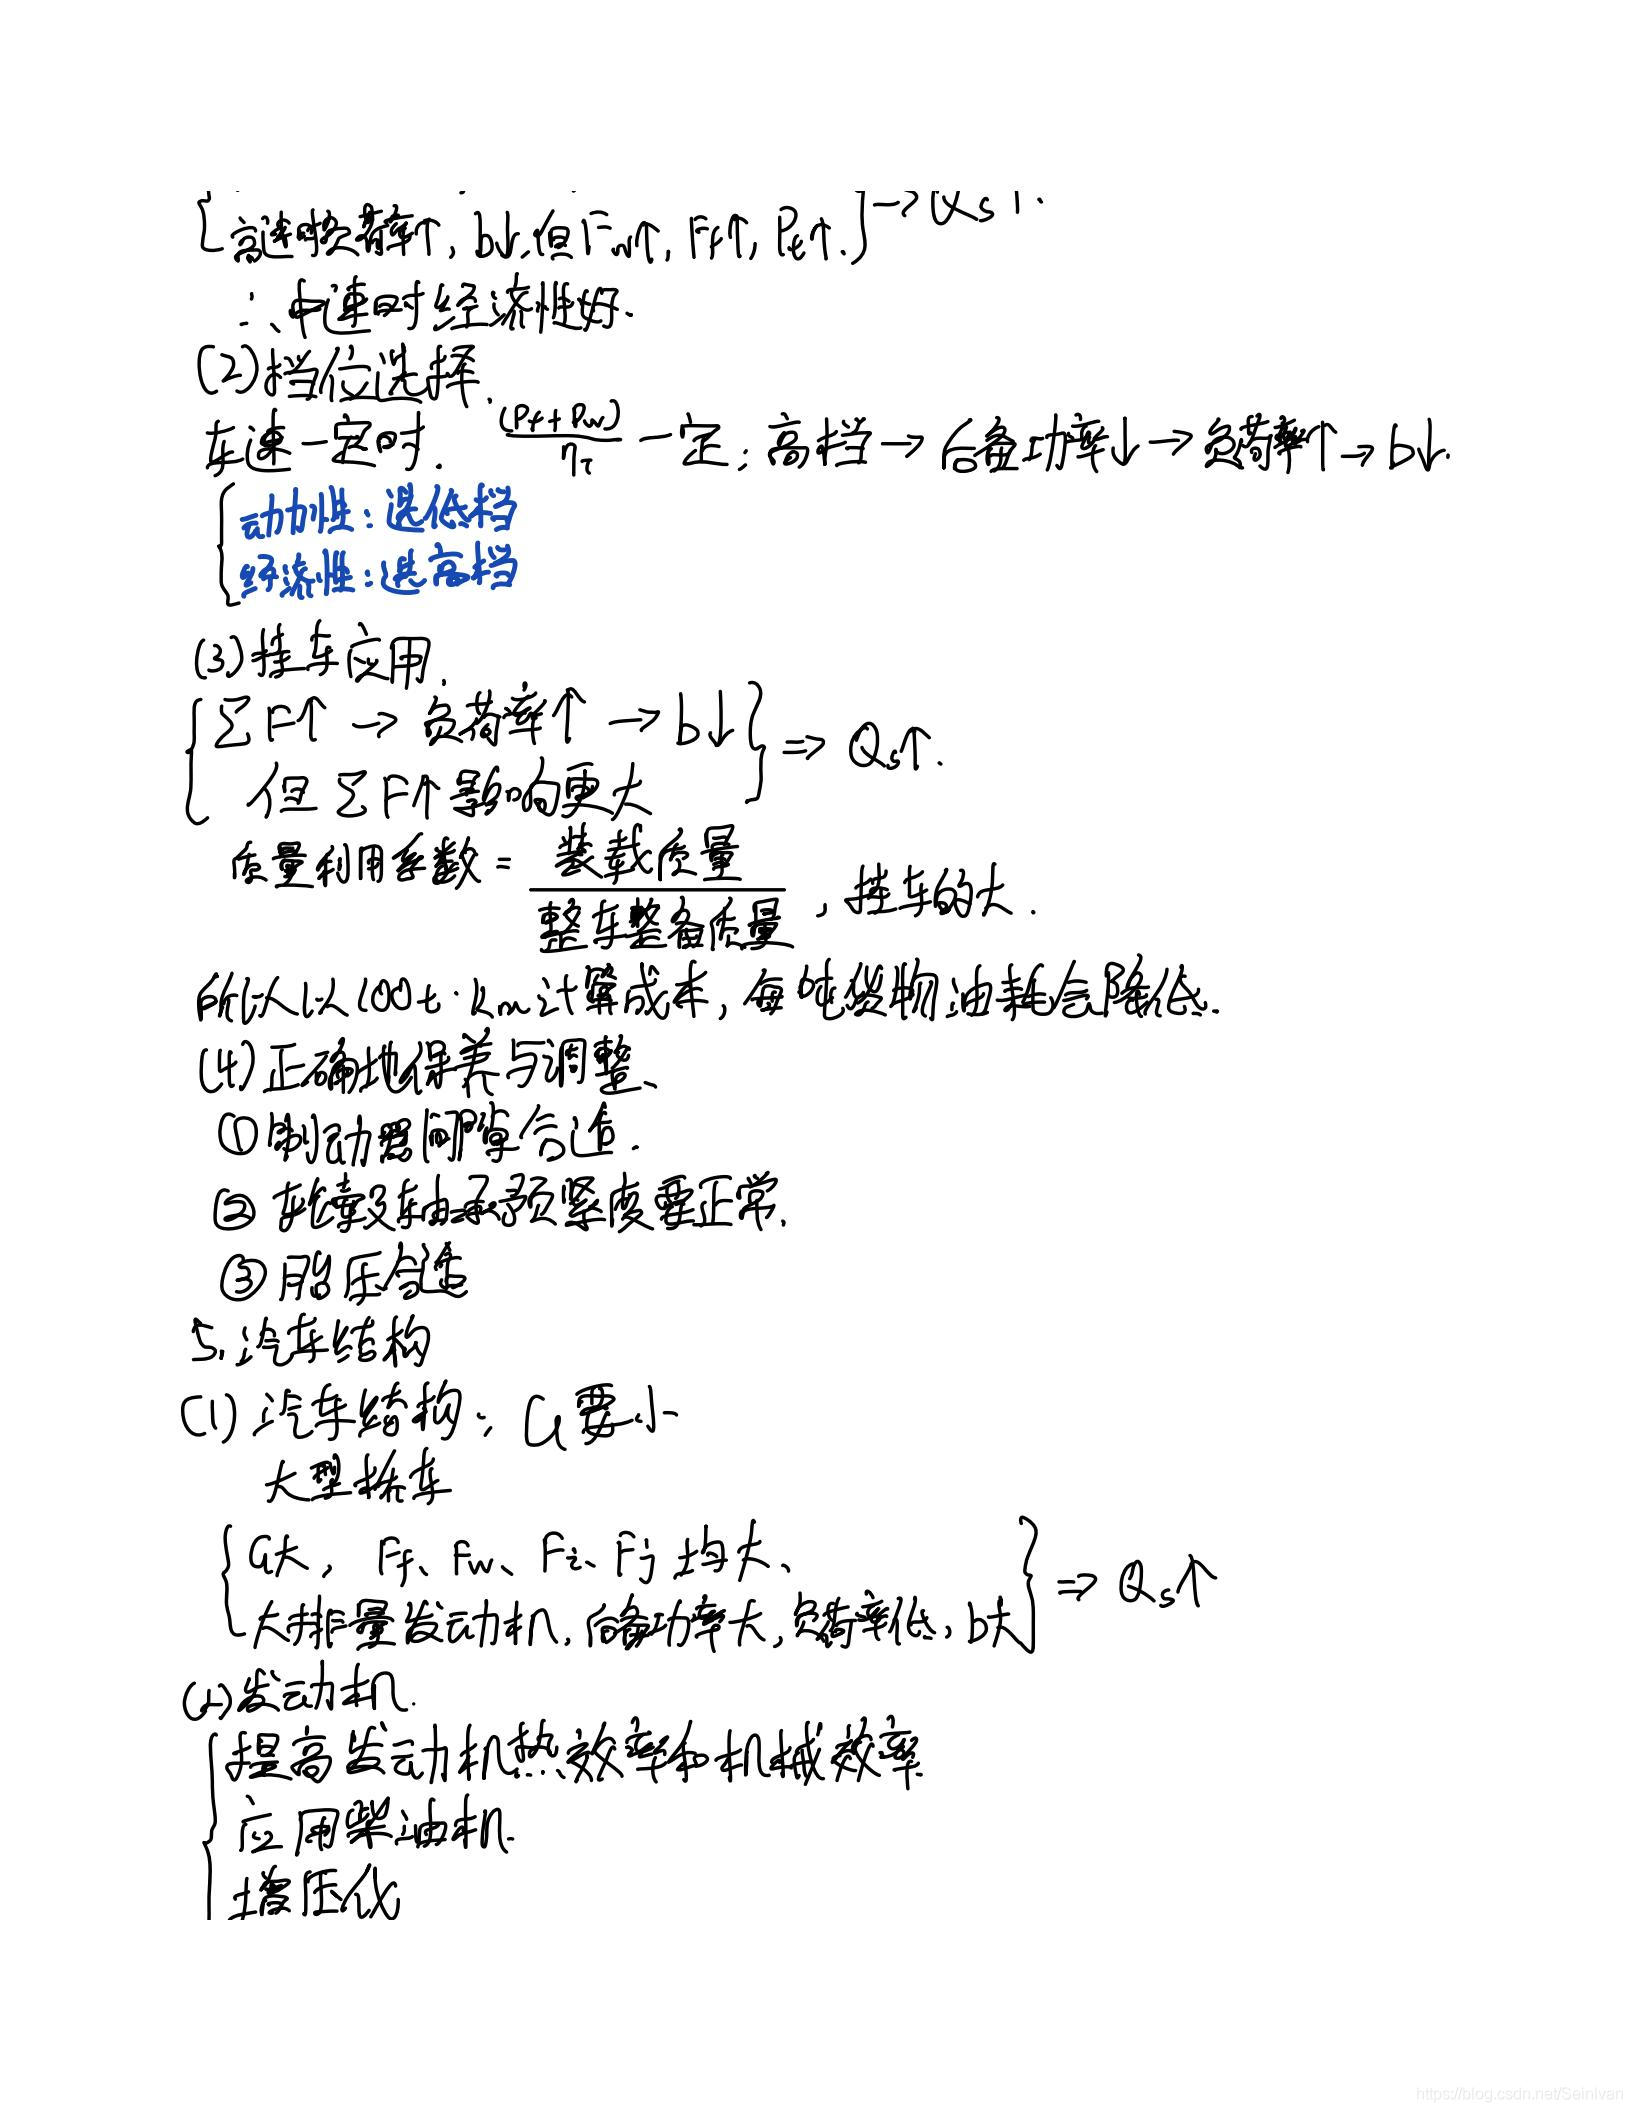 高速时负荷率↑, b↓.但Fw↑, Ff↑, Pt↑. → Qs↑.
∴中速时经济性好.
(2)挡位选择.
车速一定时. (Pf+Pw)/ηT 一定; 高档→后备功率↓→负荷率↑→b↓.
动力性:选低档
经济性:选高档
(3)挂车应用.
ΣF↑ → 负荷率↑ → b↓
但ΣF↑影响更大 ⇒ Qs↑.
质量利用系数 = 装载质量/整车整备质量 , 挂车的大.
所以以100t·km计算成本, 每吨货物油耗会降低.
(4)正确地保养与调整、
①制动器间隙合适.
②车轮毂轴承预紧度要正常.
③胎压合适
5.汽车结构
(1)汽车结构: G要小
大型轿车
G大, Ff、Fw、Fi、Fj均大、
大排量发动机,后备功率大,负荷率低, b大 ⇒ Qs↑
(2)发动机.
提高发动机热效率和机械效率
应用柴油机
增压化
https://blog.csdn.net/SeinIvan